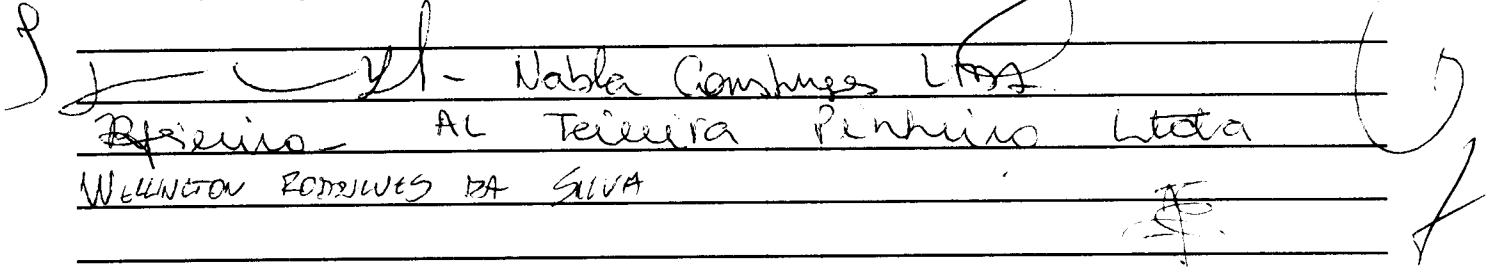 Nabla Construções LTDA
AL Teixeira Pinheiro Ltda
WELLINGTON RODRIGUES DA SILVA